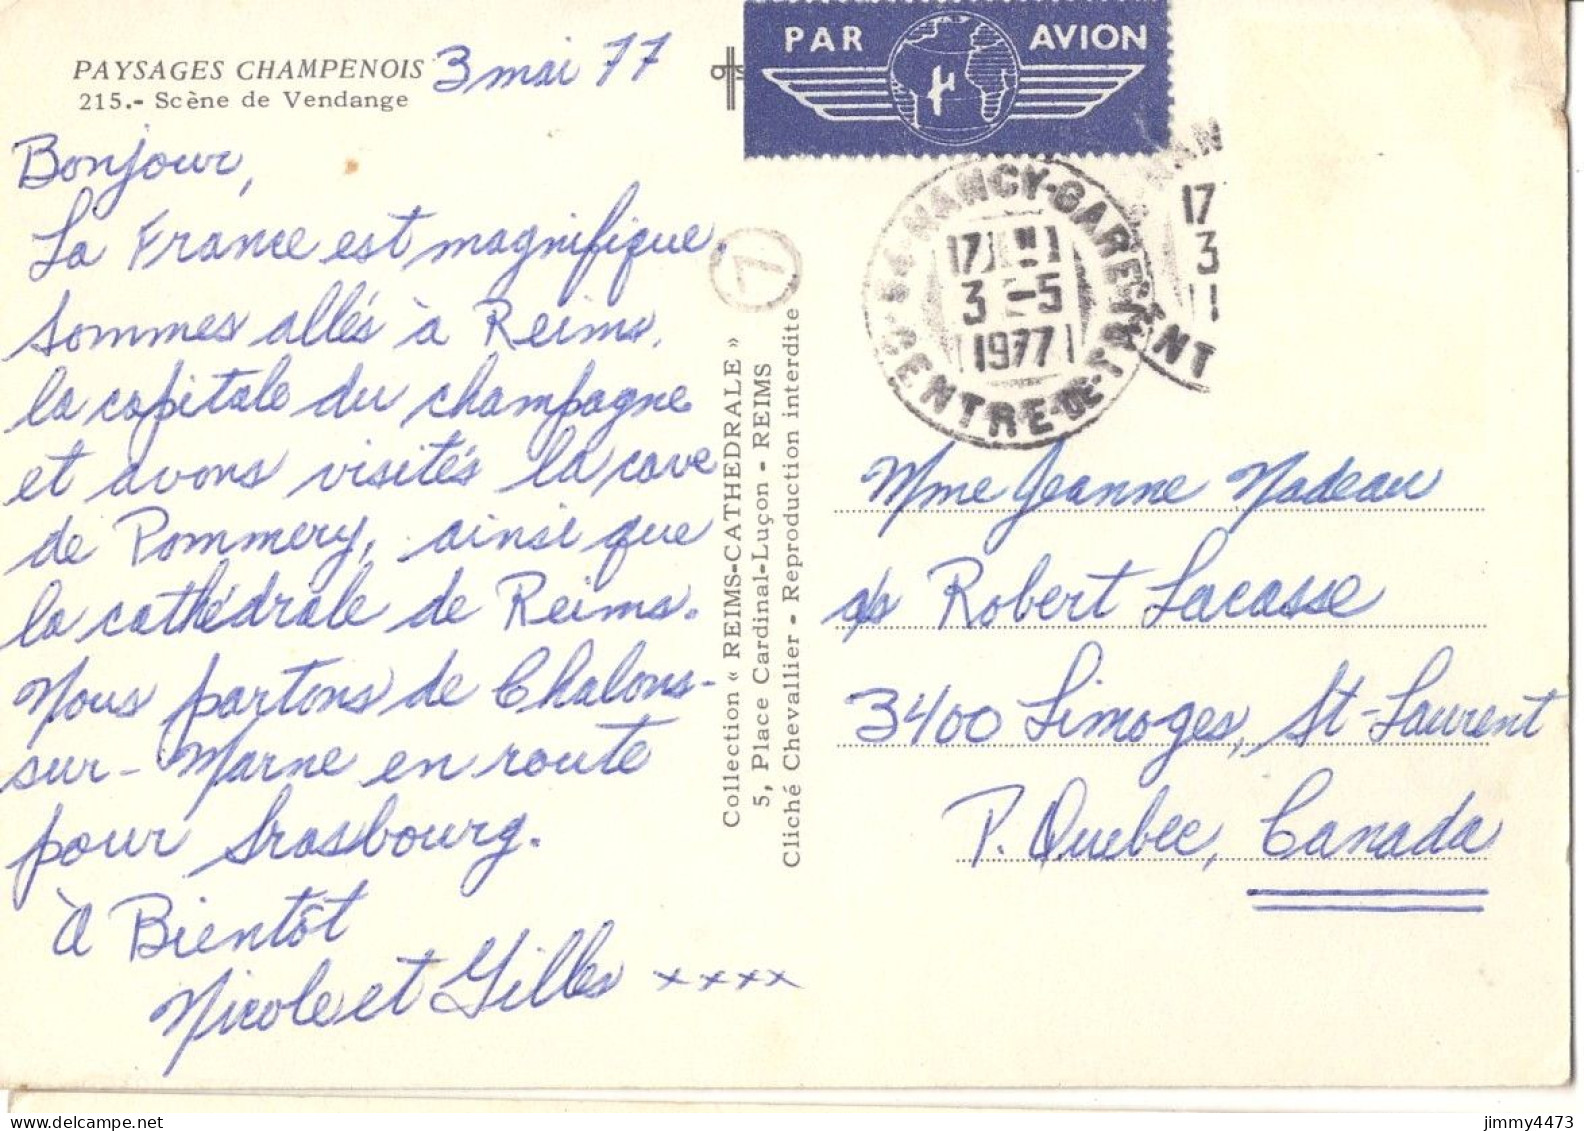 PAYSAGES CHAMPENOIS
215.- Scène de Vendange
3 mai 77
Bonjour,
La France est magnifique.
Sommes allés à Reims,
la capitale du champagne
et avons visités la cave
de Pommery, ainsi que
la cathédrale de Reims.
Nous partons de Chalons-
sur-Marne en route
pour Srasbourg.
à Bientôt
Nicole et Gilles xxxx
Collection « REIMS-CATHEDRALE »
5, Place Cardinal-Luçon - REIMS
Cliché Chevallier - Reproduction interdite
7
PAR AVION
54-NANCY-GARE
17H
3 -5
1977
CENTRE-DE-TRI
NAN
17
3
1
ENT
Mme Jeanne Nadeau
a/s Robert Lacasse
3400 Limoges, St-Laurent
P. Quebec, Canada
jimmy4473